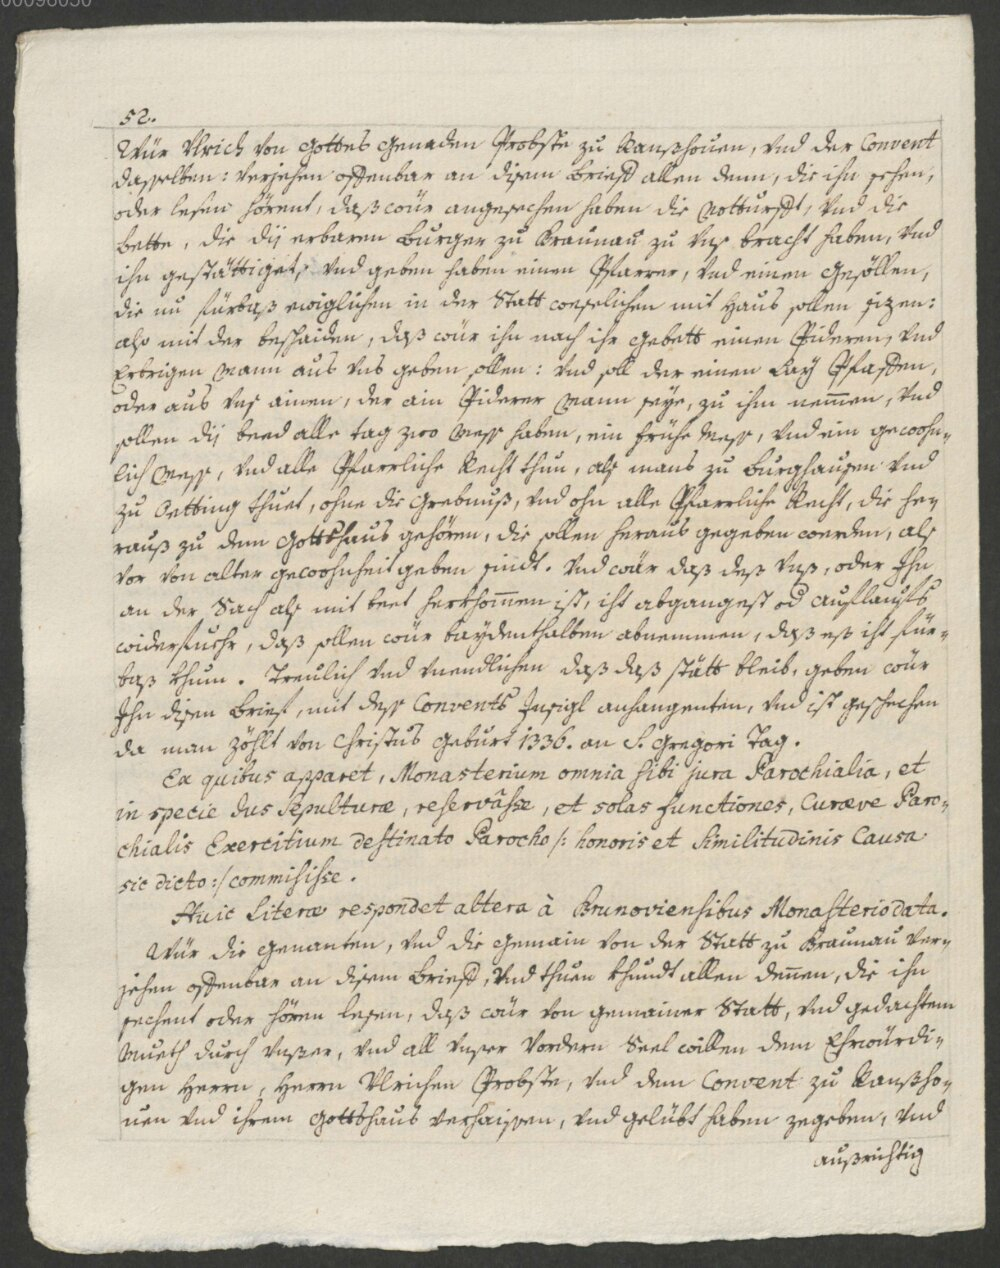 00096050
52.
Wür Ulrich von Gottes Genaden Probste zu Ranßhouen, vnd der Convent
dasselben: Verjehen offenbar an disem brieff allen denn, die ihn sehen,
oder lesen hörent, daß wür angesechen haben die notturfft, vnd die
bette, die dij erbaren burger zu Braunau zu vns bracht haben, vnd
ihn gestättiget, vnd geben haben einen Pfarrer, vnd einen Gesöllen,
die nu fürbaß ewiglichen in der Statt wesselichen mit Haus sollen sizen:
also mit der beschaiden, daß wür ihn nach ihr gebett einen Pideren, vnd
Erbrigen Mann aus vns geben sollen: vnd soll der einen Lay Pfaffen,
oder aus vns ainen, der ain Piderer Mann seye, zu ihm nemmen, vnd
sollen dij beed alle tag zwo Mess haben, ein frühe Mess, vnd ein gewohn-
lich Mess, vnd alle Pfarrliche Recht thun, als mans zu burghausen vnd
zu Oetting thuet, ohne die Grebnuß, vnd ohn alle Pfarrliche Recht, die he-
rauß zu dem Gottshaus gehören, die sollen heraus gegeben werden, als
vor von alter gewohnheit geben sindt. Vnd wär daß deß vnß, oder Ihn
an der Sach als mit herkhommen ist, iht abgangest od auflaufs
widerfuehr, daß sollen wür baydenthalben abnemmen, daß eß iht für-
baß khum. Treulich vnd vnendlichen daß daß stätt bleib, geben wür
Ihn disen brief, mit dess Convents Insigl anhangenten, vnd ist geschechen
da man zöhlt von Christus geburt 1336. an S. Gregori Tag.
Ex quibus apparet, Monasterium omnia sibi jura Parochialia, et
in specie Jus Sepulturæ, reservâsse, et solas functiones, Curæve Paro-
chialis Exercitium destinato Parocho /: honoris et Similitudinis Causa
sic dicto :/ commisisse.
Huic Literæ respondet altera à Brunoviensibus Monasterio data.
Wür die Genanten, vnd die Gemain von der Statt zu Braunau Ver-
jehen offenbar an disem brieff, vnd thuen khundt allen dennen, die ihn
sechent oder hören lesen, daß wür von gemainer Statt, vnd gedachtem
Mueth durch vnßer, vnd all vnser Vordern Seel willen dem Ehrwürdi-
gen Herrn, Herrn Ulrichen Probste, vnd dem Convent zu Ranßho-
uen vnd ihrem Gottshaus verhaissen, vnd gelübt haben zegeben, vnd
außrichtig